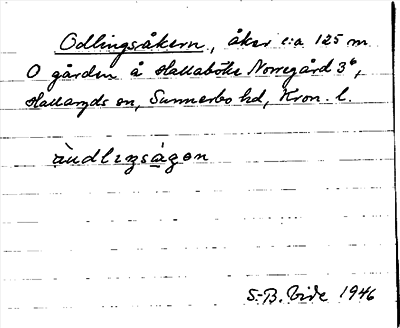 Odlingsåkern, åker c:a 125 m
O gården å Hallaböke Norregård 3⁶,
Hallaryds sn, Sunnerbo hd, Kron. l.
àudlıŋsågen
S.-B. Vide 1946